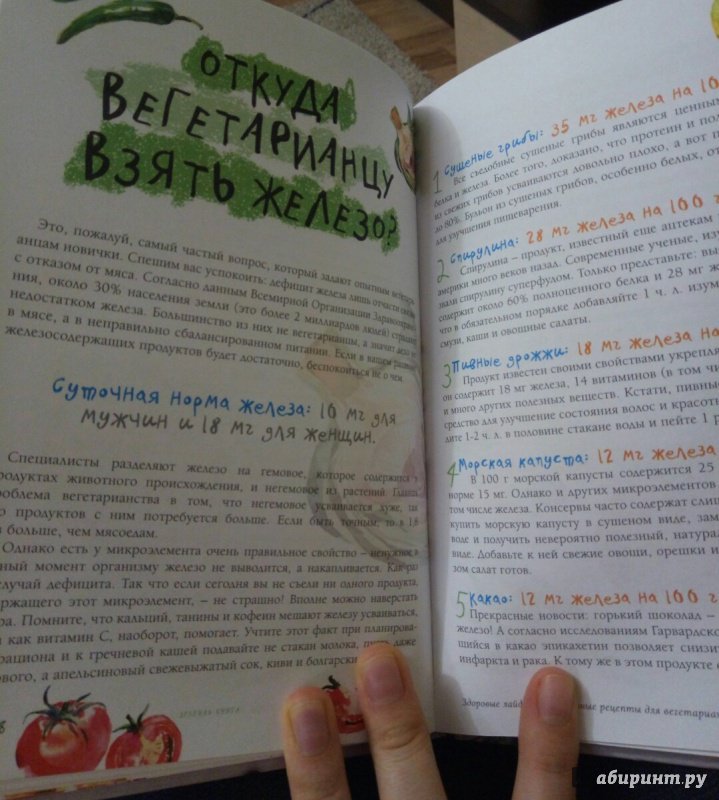 ОТКУДА
ВЕГЕТАРИАНЦУ
ВЗЯТЬ ЖЕЛЕЗО?
Это, пожалуй, самый частый вопрос, который задают опытным вегетари-
анцам новички. Спешим вас успокоить: дефицит железа лишь отчасти связан
с отказом от мяса. Согласно данным Всемирной Организации Здравоохране-
ния, около 30% населения земли (это более 2 миллиардов людей) страдают
недостатком железа. Большинство из них не вегетарианцы, а значит дело не
в мясе, а в неправильно сбалансированном питании. Если в вашем рационе
железосодержащих продуктов будет достаточно, беспокоиться не о чем.
Суточная норма железа: 10 мг для
мужчин и 18 мг для женщин.
Специалисты разделяют железо на гемовое, которое содержится в
продуктах животного происхождения, и негемовое из растений. Главная
проблема вегетарианства в том, что негемовое усваивается хуже, так
продуктов с ним потребуется больше. Если быть точным, то в 1.8
больше, чем мясоедам.
Однако есть у микроэлемента очень правильное свойство – ненужное в
ный момент организму железо не выводится, а накапливается. Как раз
случай дефицита. Так что если сегодня вы не съели ни одного продукта,
держащего этот микроэлемент, – не страшно! Вполне можно наверстать
ра. Помните, что кальций, танины и кофеин мешают железу усваиваться,
как витамин С, наоборот, помогает. Учтите этот факт при планирова-
рациона и к гречневой кашей подавайте не стакан молока, пусть даже
ового, а апельсиновый свежевыжатый сок, киви и болгарский
6
1 Сушеные грибы: 35 мг железа на 10
Все съедобные сушеные грибы являются ценным
белка и железа. Более того, доказано, что протеин и пол
из свежих грибов усваиваются довольно плохо, а вот п
до 80%. Бульон из сушеных грибов, особенно белых, от
для улучшения пищеварения.
2 Спирулина: 28 мг железа на 100 г
Спирулина – продукт, известный еще ацтекам
америки много веков назад. Современные ученые, изу
звали спирулину суперфудом. Только представьте: вы
содержит около 60% полноценного белка и 28 мг ж
что в обязательном порядке добавляйте 1 ч. л. изум
смузи, каши и овощные салаты.
3 Пивные дрожжи: 18 мг железа на
Продукт известен своими свойствами укрепля
ов содержит 18 мг железа, 14 витаминов (в том чи
и много других полезных веществ. Кстати, пивны
средство для улучшения состояния волос и красоты
дите 1-2 ч. л. в половине стакане воды и пейте 1 р
4 Морская капуста: 12 мг железа
В 100 г морской капусты содержится 25
норме 15 мг. Однако и других микроэлементов
том числе железа. Консервы часто содержат слиш
купить морскую капусту в сушеном виде, зам
воде и получить невероятно полезный, натурал
виде. Добавьте к ней свежие овощи, орешки и
зом салат готов.
5 Какао: 12 мг железа на 100 г
Прекрасные новости: горький шоколад –
железо! А согласно исследованиям Гарвардско
шийся в какао эпикахетин позволяет снизит
инфаркта и рака. К тому же в этом продукте
Здоровые лайф ные рецепты для вегетариан
абиринт.ру